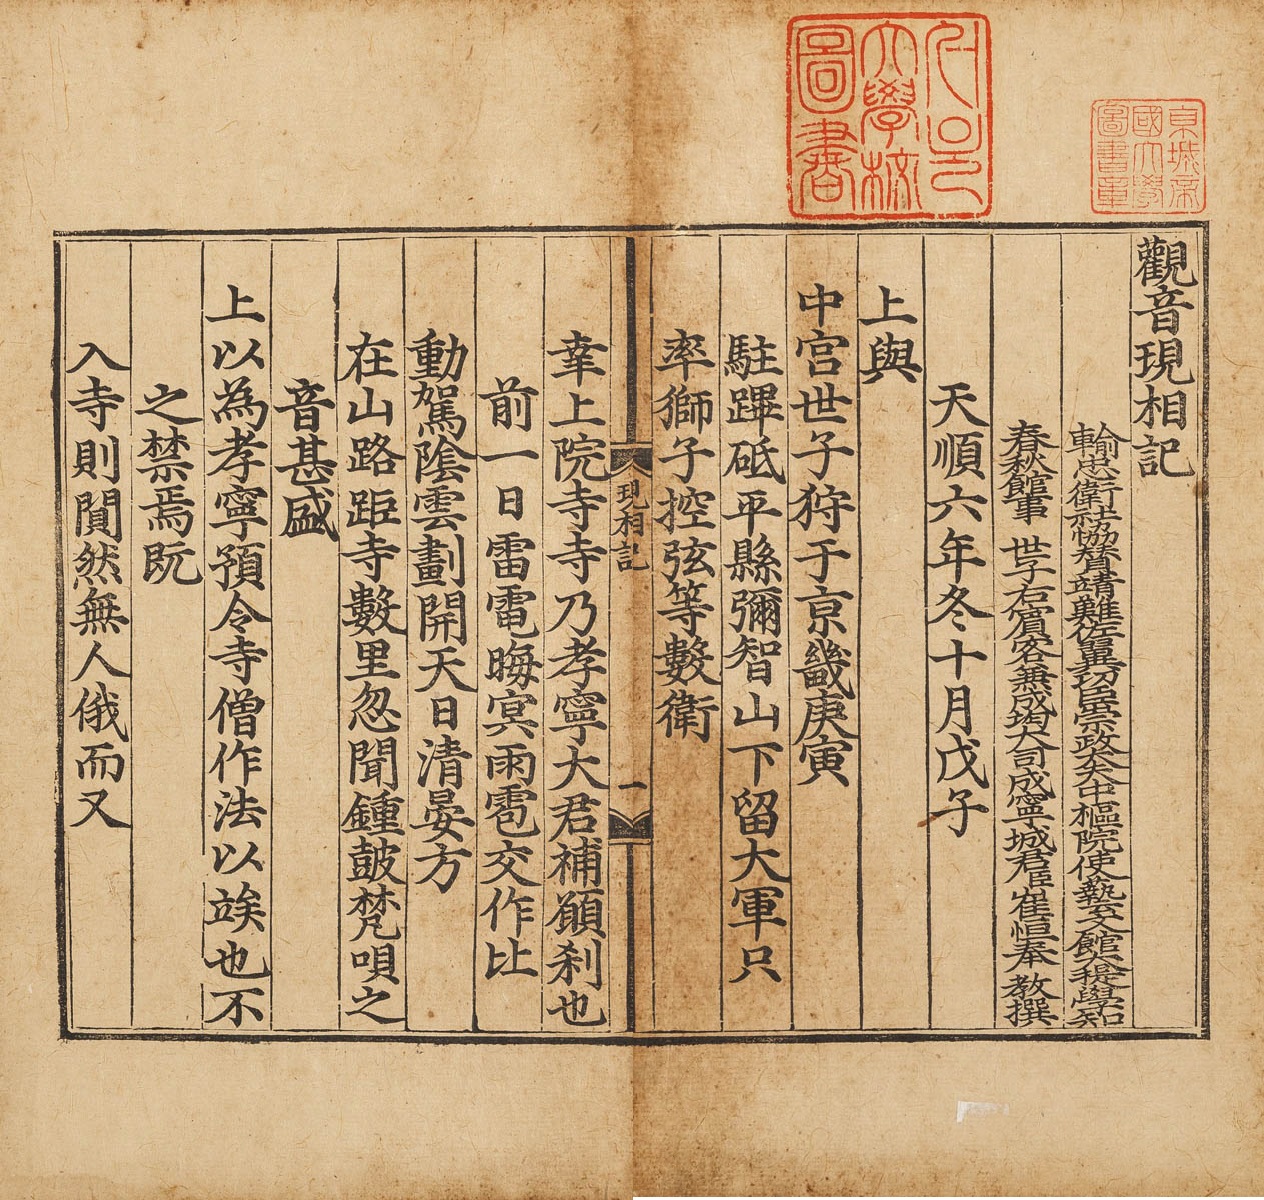 觀音現相記
輸忠衛社協贊靖難佐翼功臣崇政大夫中樞院使藝文館大提學知
春秋館事 世子右賓客兼成均大司成寧城君臣崔恒奉 教撰
天順六年冬十月戊子
上與
中宮世子狩于京畿庚寅
駐蹕砥平縣彌智山下留大軍只
率獅子控弦等數衛
現相記
一
幸上院寺寺乃孝寧大君補願刹也
前一日雷電晦冥雨雹交作比
動駕陰雲劃開天日清晏方
在山路距寺數里忽聞鍾鼓梵唄之
音甚盛
上以為孝寧預令寺僧作法以竢也不
之禁焉既
入寺則闃然無人俄而又
京城帝
國大學
圖書章
大學校
圖書